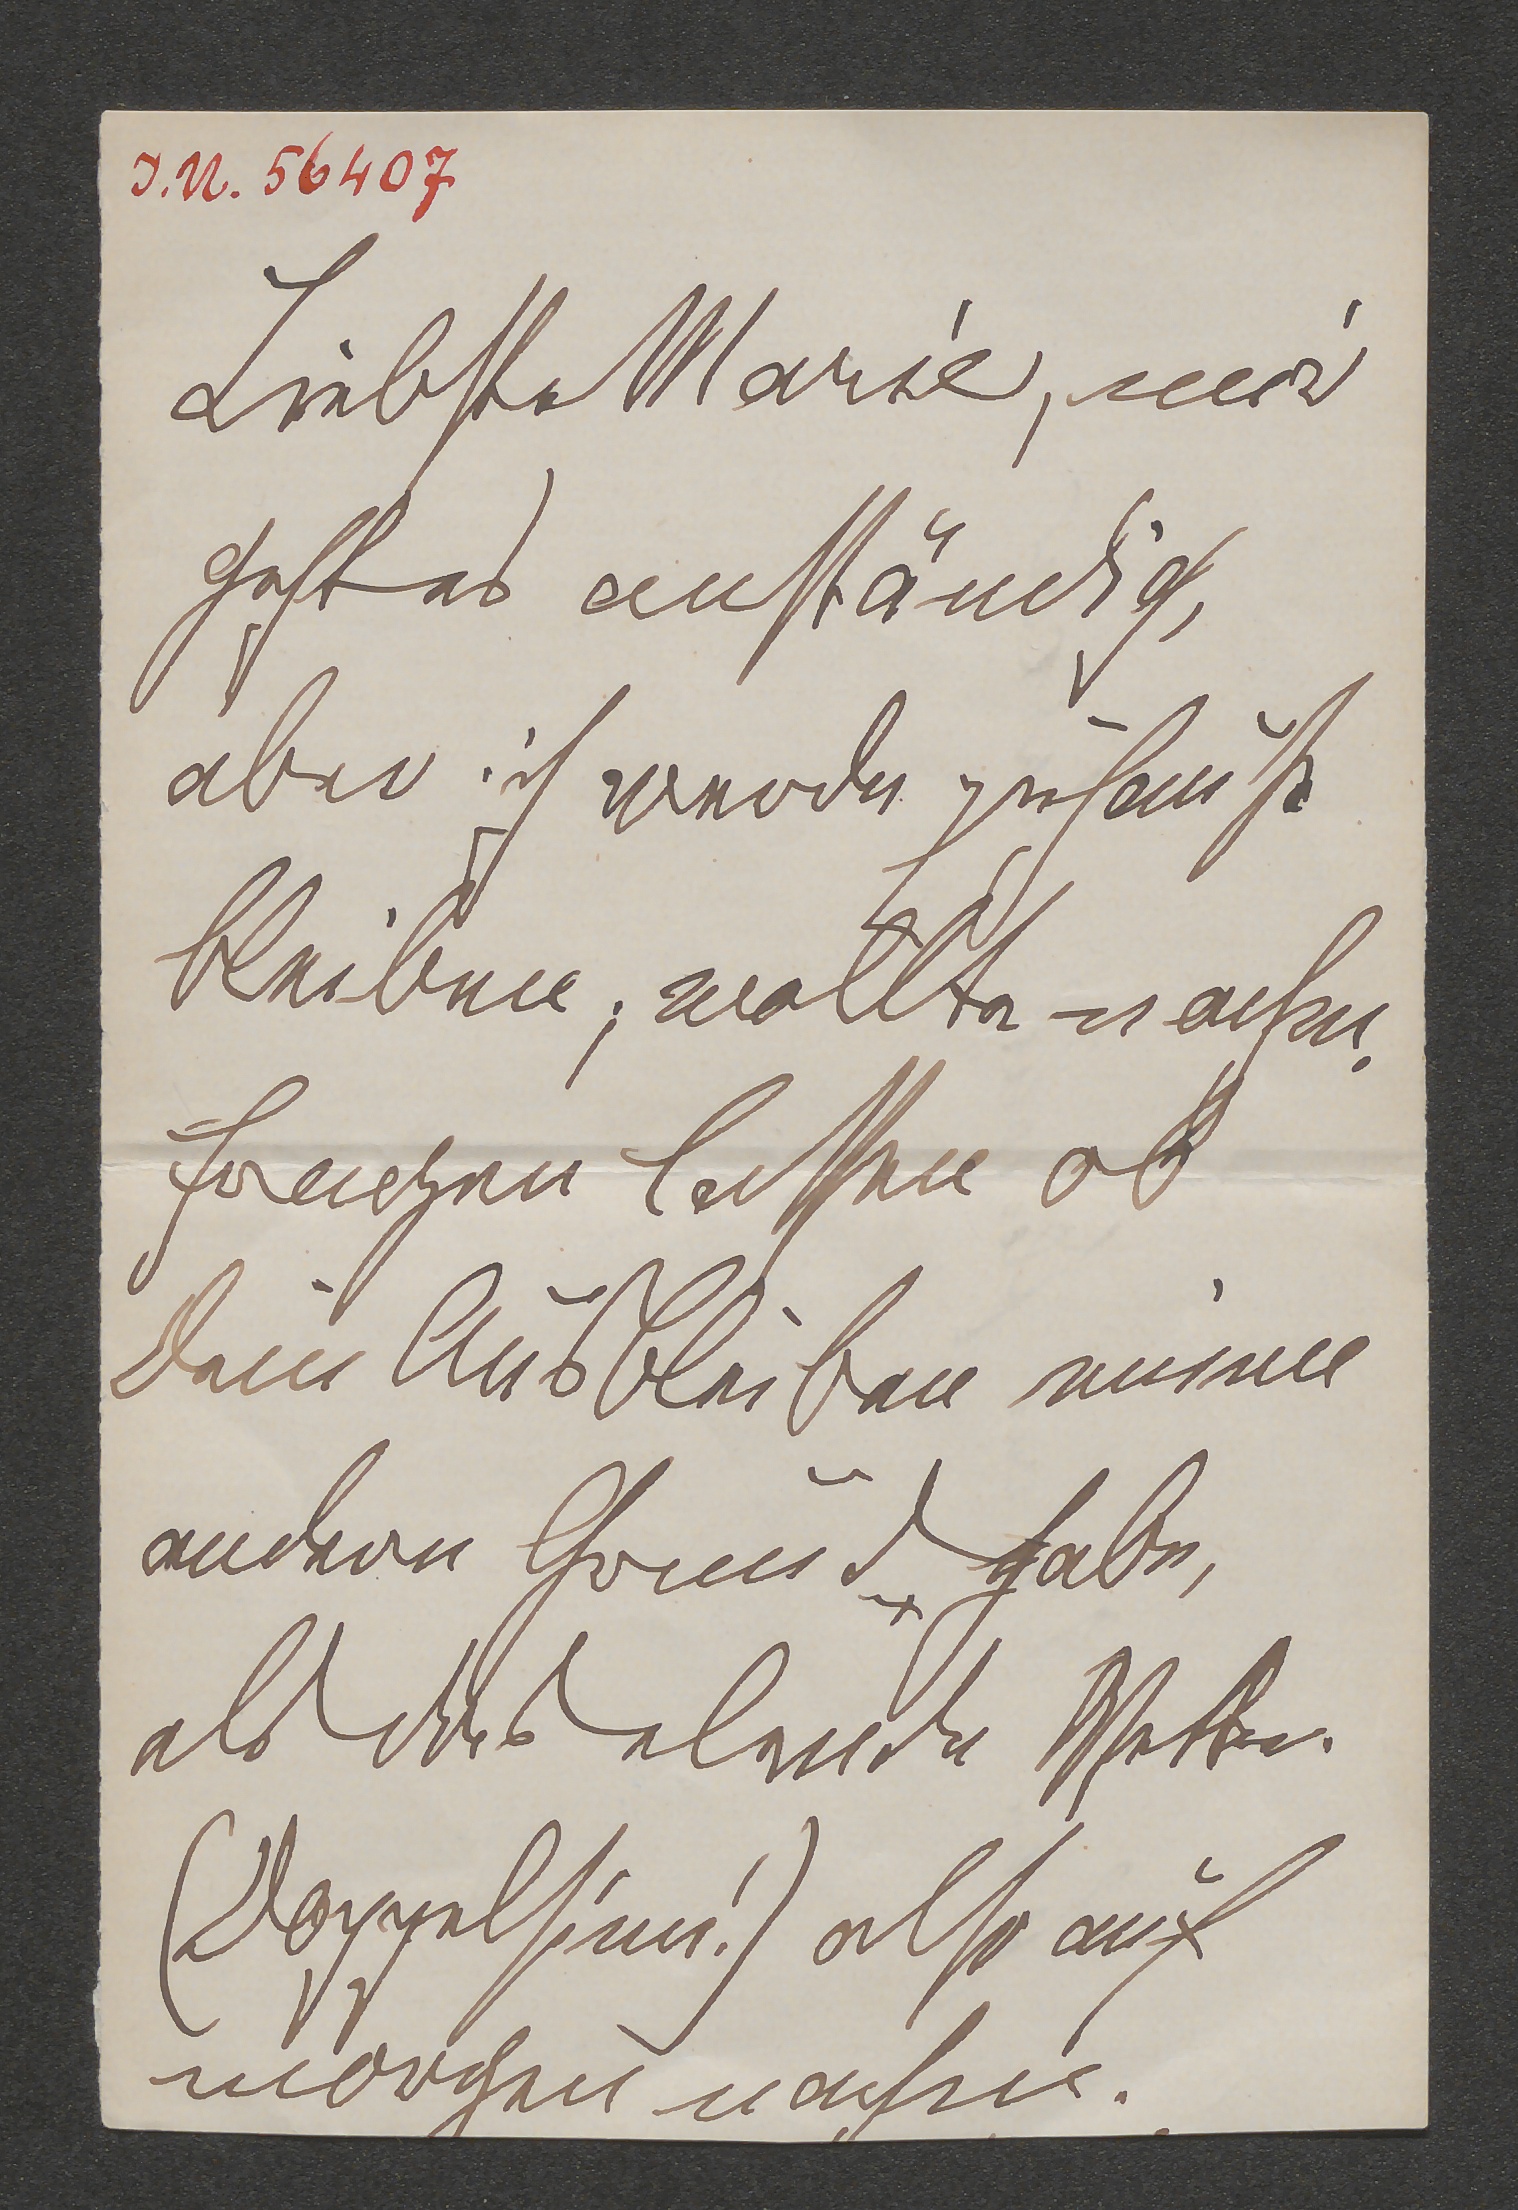 I.N. 56407
Liebste Marie, mir
geht es anständig,
aber ich werde zuhause
bleiben; wollte nachm.
fragen lassen ob
Dein Ausbleiben einen
andern Grund habe,
als das elende Wetter.
(Doppelsinn!) also auf
morgen nachm.